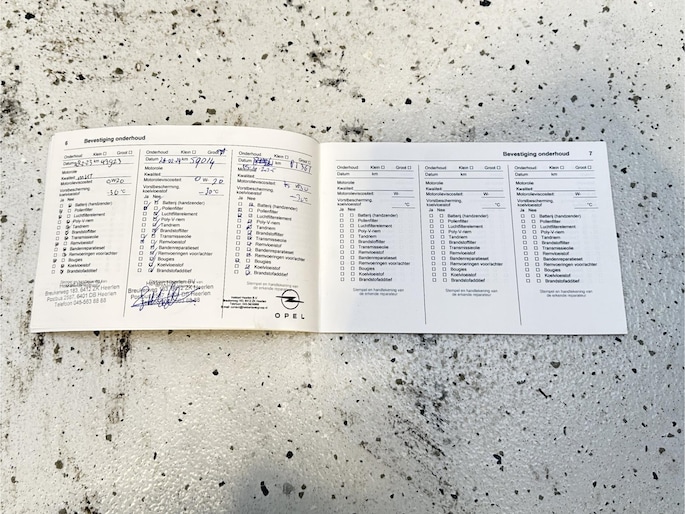 6 Bevestiging onderhoud
Onderhoud Klein ☐ Groot ☐
Datum km 43923
Motorolie
Kwaliteit
Motorolieviscositeit 0W20
Vorstbescherming,
koelvloeistof -30 °C
Ja Nee
Batterij (handzender)
Pollenfilter
Luchtfilterelement
Poly-V-riem
Tandriem
Brandstoffilter
Transmissieolie
Remvloeistof
Bandenreparatieset
Remvoeringen voor/achter
Bougies
Koelvloeistof
Brandstofadditief
Breukerweg 183, 6412 ZK Heerlen
Postbus 2687, 6401 DB Heerlen
Onderhoud Klein ☐ Groot
Datum km 59014
Motorolie
Kwaliteit
Motorolieviscositeit 0W20
Vorstbescherming,
koelvloeistof -30 °C
Ja Nee
Batterij (handzender)
Pollenfilter
Luchtfilterelement
Poly-V-riem
Tandriem
Brandstoffilter
Transmissieolie
Remvloeistof
Bandenreparatieset
Remvoeringen voor/achter
Bougies
Koelvloeistof
Brandstofadditief
Onderhoud Klein ☐ Groot ☐
Datum km
Motorolie
Kwaliteit
Motorolieviscositeit
Vorstbescherming,
koelvloeistof
Ja Nee
Batterij (handzender)
Pollenfilter
Luchtfilterelement
Poly-V-riem
Tandriem
Brandstoffilter
Transmissieolie
Remvloeistof
Bandenreparatieset
Remvoeringen voor/achter
Bougies
Koelvloeistof
Brandstofadditief
OPEL
Bevestiging onderhoud 7
Onderhoud Klein ☐ Groot ☐
Datum km
Motorolie
Kwaliteit
Motorolieviscositeit W-
Vorstbescherming,
koelvloeistof °C
Ja Nee
☐ ☐ Batterij (handzender)
☐ ☐ Pollenfilter
☐ ☐ Luchtfilterelement
☐ ☐ Poly-V-riem
☐ ☐ Tandriem
☐ ☐ Brandstoffilter
☐ ☐ Transmissieolie
☐ ☐ Remvloeistof
☐ ☐ Bandenreparatieset
☐ ☐ Remvoeringen voor/achter
☐ ☐ Bougies
☐ ☐ Koelvloeistof
☐ ☐ Brandstofadditief
Stempel en handtekening van
de erkende reparateur
Onderhoud Klein ☐ Groot ☐
Datum km
Motorolie
Kwaliteit
Motorolieviscositeit W-
Vorstbescherming,
koelvloeistof °C
Ja Nee
☐ ☐ Batterij (handzender)
☐ ☐ Pollenfilter
☐ ☐ Luchtfilterelement
☐ ☐ Poly-V-riem
☐ ☐ Tandriem
☐ ☐ Brandstoffilter
☐ ☐ Transmissieolie
☐ ☐ Remvloeistof
☐ ☐ Bandenreparatieset
☐ ☐ Remvoeringen voor/achter
☐ ☐ Bougies
☐ ☐ Koelvloeistof
☐ ☐ Brandstofadditief
Stempel en handtekening van
de erkende reparateur
Onderhoud Klein ☐ Groot ☐
Datum km
Motorolie
Kwaliteit
Motorolieviscositeit W-
Vorstbescherming,
koelvloeistof °C
Ja Nee
☐ ☐ Batterij (handzender)
☐ ☐ Pollenfilter
☐ ☐ Luchtfilterelement
☐ ☐ Poly-V-riem
☐ ☐ Tandriem
☐ ☐ Brandstoffilter
☐ ☐ Transmissieolie
☐ ☐ Remvloeistof
☐ ☐ Bandenreparatieset
☐ ☐ Remvoeringen voor/achter
☐ ☐ Bougies
☐ ☐ Koelvloeistof
☐ ☐ Brandstofadditief
Stempel en handtekening van
de erkende reparateur